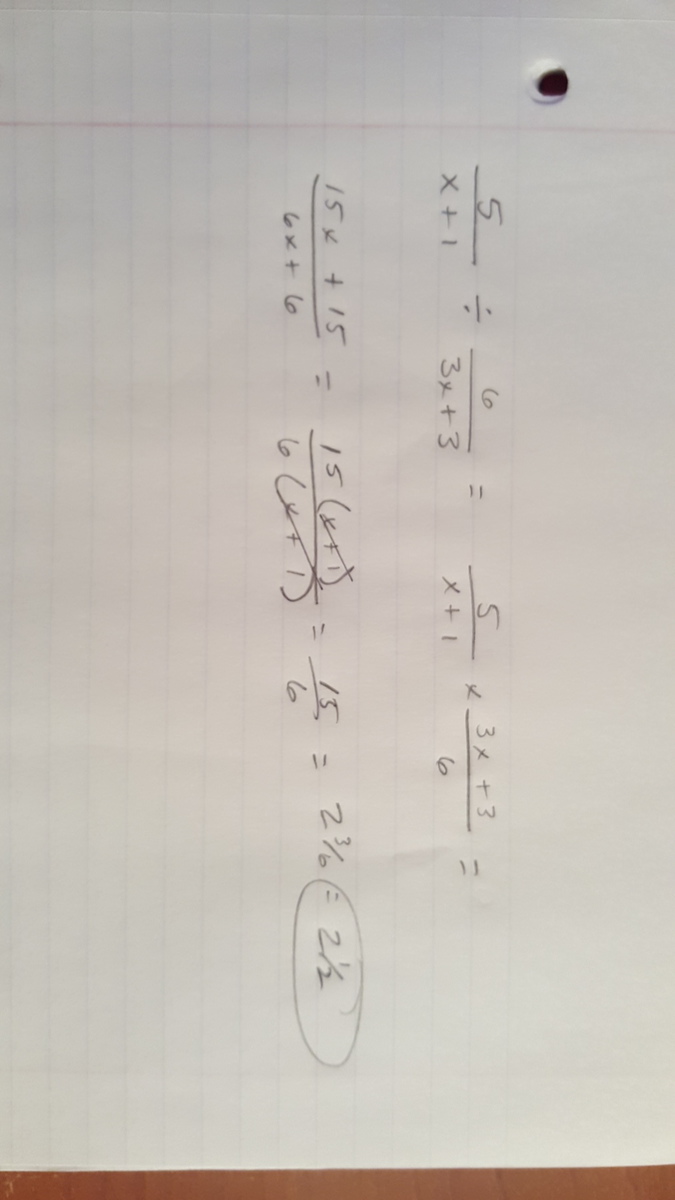 5/(x+1) ÷ 6/(3x+3) = 5/(x+1) × (3x+3)/6 =
(15x+15)/(6x+6) = 15(x+1)/6(x+1) = 15/6 = 2 3/6 = 2 1/2